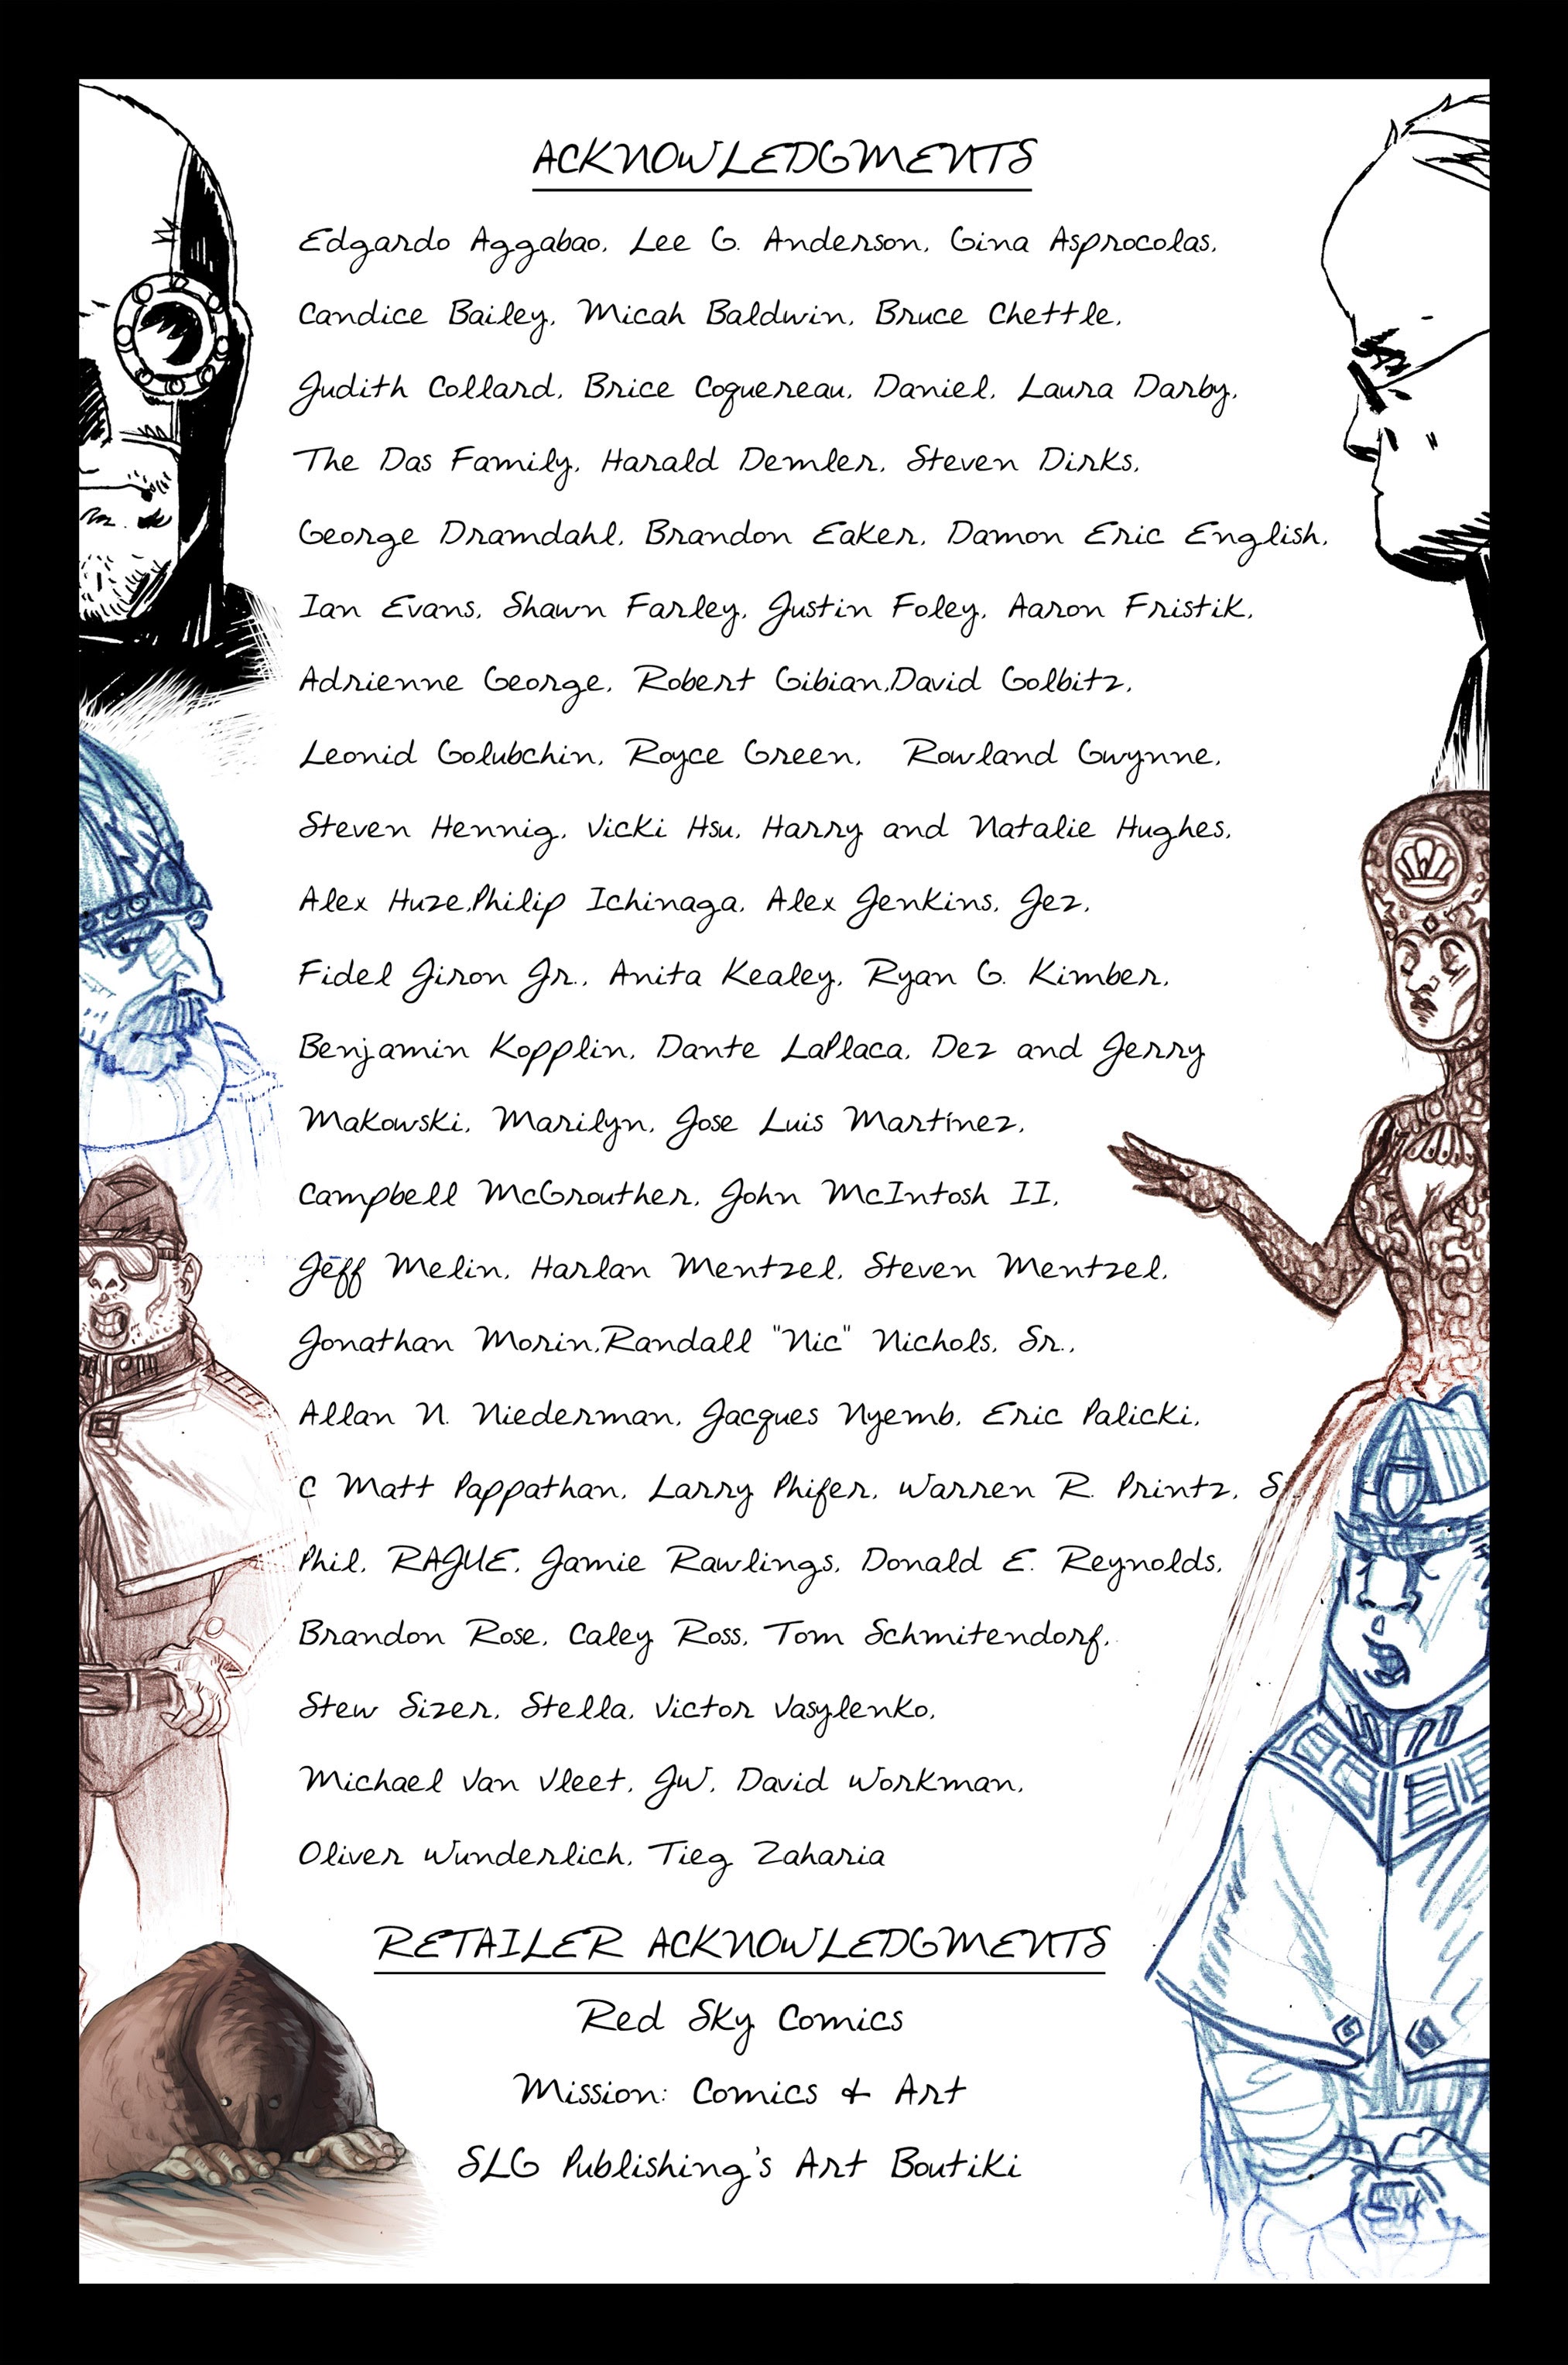 ACKNOWLEDGMENTS
Edgardo Aggabao, Lee G. Anderson, Gina Asprocolas,
Candice Bailey, Micah Baldwin, Bruce Chettle,
Judith Collard, Brice Coquereau, Daniel, Laura Darby,
The Das Family, Harald Demler, Steven Dirks,
George Dramdahl, Brandon Eaker, Damon Eric English,
Ian Evans, Shawn Farley, Justin Foley, Aaron Fristik,
Adrienne George, Robert Gibian,David Golbitz,
Leonid Golubchin, Royce Green, Rowland Gwynne,
Steven Hennig, Vicki Hsu, Harry and Natalie Hughes,
Alex Huze,Philip Ichinaga, Alex Jenkins, Jez,
Fidel Jiron Jr., Anita Kealey, Ryan G. Kimber,
Benjamin Kopplin, Dante LaPlaca, Dez and Jerry
Makowski, Marilyn, Jose Luis Martínez,
Campbell McGrouther, John McIntosh II,
Jeff Melin, Harlan Mentzel, Steven Mentzel,
Jonathan Morin,Randall "Nic" Nichols, Sr.,
Allan N. Niederman, Jacques Nyemb, Eric Palicki,
C Matt Pappathan, Larry Phifer, Warren R. Printz,
Phil, RAJUE, Jamie Rawlings, Donald E. Reynolds,
Brandon Rose, Caley Ross, Tom Schmitendorf,
Stew Sizer, Stella, Victor Vasylenko,
Michael Van Vleet, JW, David Workman,
Oliver Wunderlich, Tieg Zaharia
RETAILER ACKNOWLEDGMENTS
Red Sky Comics
Mission: Comics & Art
SLG Publishing's Art Boutiki